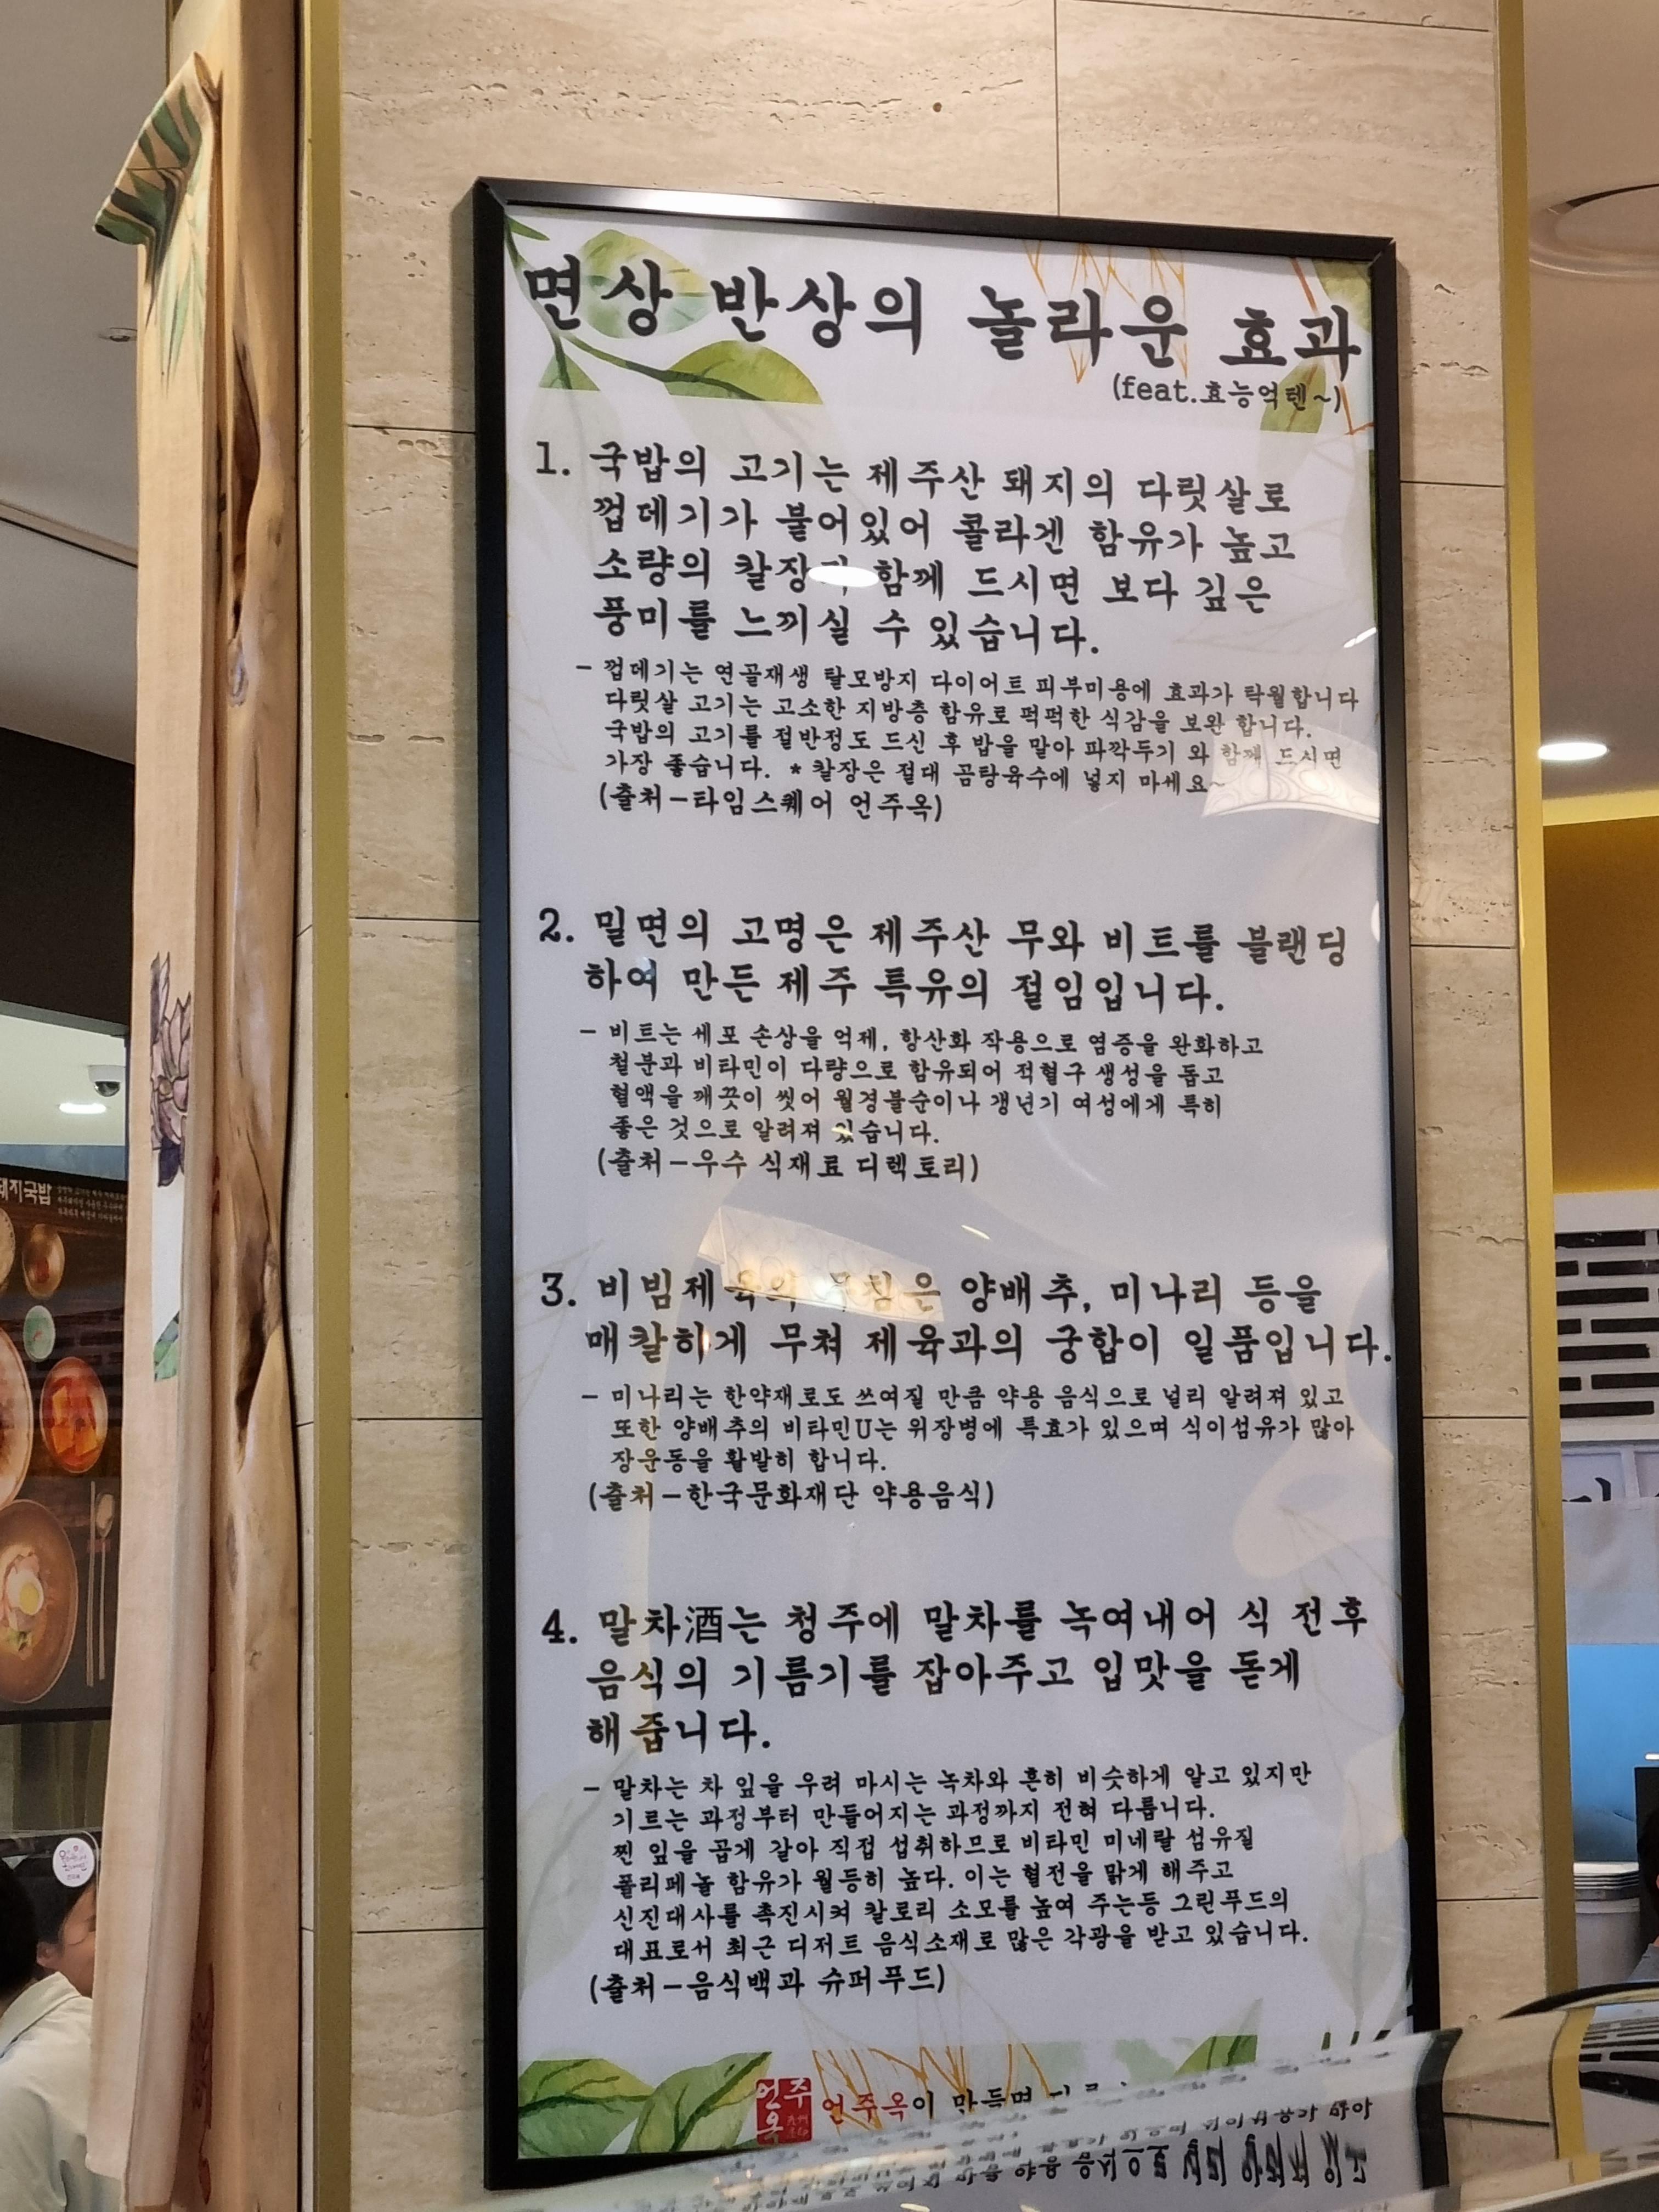 면상 반상의 놀라운 효과
(feat.효능억텐~)
1. 국밥의 고기는 제주산 돼지의 다릿살로
껍데기가 붙어있어 콜라겐 함유가 높고
소량의 칼장과 함께 드시면 보다 깊은
풍미를 느끼실 수 있습니다.
- 껍데기는 연골재생 탈모방지 다이어트 피부미용에 효과가 탁월합니다
다릿살 고기는 고소한 지방층 함유로 퍽퍽한 식감을 보완 합니다.
국밥의 고기를 절반정도 드신 후 밥을 말아 파깍두기 와 함께 드시면
가장 좋습니다. * 칼장은 절대 곰탕육수에 넣지 마세요~
(출처-타임스퀘어 언주옥)
2. 밀면의 고명은 제주산 무와 비트를 블랜딩
하여 만든 제주 특유의 절임입니다.
- 비트는 세포 손상을 억제, 항산화 작용으로 염증을 완화하고
철분과 비타민이 다량으로 함유되어 적혈구 생성을 돕고
혈액을 깨끗이 씻어 월경불순이나 갱년기 여성에게 특히
좋은 것으로 알려져 있습니다.
(출처-우수 식재료 디렉토리)
3. 비빔제육의 무침은 양배추, 미나리 등을
매칼하게 무쳐 제육과의 궁합이 일품입니다.
- 미나리는 한약재로도 쓰여질 만큼 약용 음식으로 널리 알려져 있고
또한 양배추의 비타민U는 위장병에 특효가 있으며 식이섬유가 많아
장운동을 활발히 합니다.
(출처-한국문화재단 약용음식)
4. 말차酒는 청주에 말차를 녹여내어 식 전후
음식의 기름기를 잡아주고 입맛을 돋게
해줍니다.
- 말차는 차 잎을 우려 마시는 녹차와 흔히 비슷하게 알고 있지만
기르는 과정부터 만들어지는 과정까지 전혀 다릅니다.
찐 잎을 곱게 갈아 직접 섭취하므로 비타민 미네랄 섬유질
폴리페놀 함유가 월등히 높다. 이는 혈전을 맑게 해주고
신진대사를 촉진시켜 칼로리 소모를 높여 주는등 그린푸드의
대표로서 최근 디저트 음식소재로 많은 각광을 받고 있습니다.
(출처-음식백과 슈퍼푸드)
언주옥
언주옥이 만들면
돼지국밥